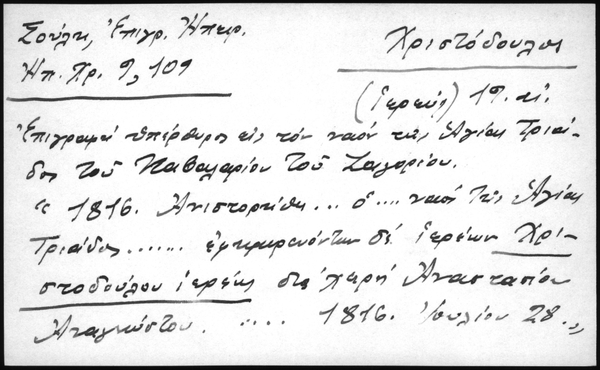 Σούλη, Ἐπιγρ. Ἠπειρ.
Ἠπ. Χρ. 9, 109
Χριστόδουλος
(ἱερεύς) 19. αἰ.
Ἐπιγραφή ὑπέρθυρος εἰς τόν ναόν τῆς Ἁγίας Τριάδος
τοῦ Καβαλαρίου τοῦ Ζαγορίου.
"1816. Ἀνιστορήθη... ὁ .... ναός τῆς Ἁγίας
Τριάδος ....... δέ ἱερέων Χρι-
στοδούλου ἱερεύς διά χειρός Ἀναστασίου
Ἀναγνώστου. ..... 1816. Ἰουλίου 28."